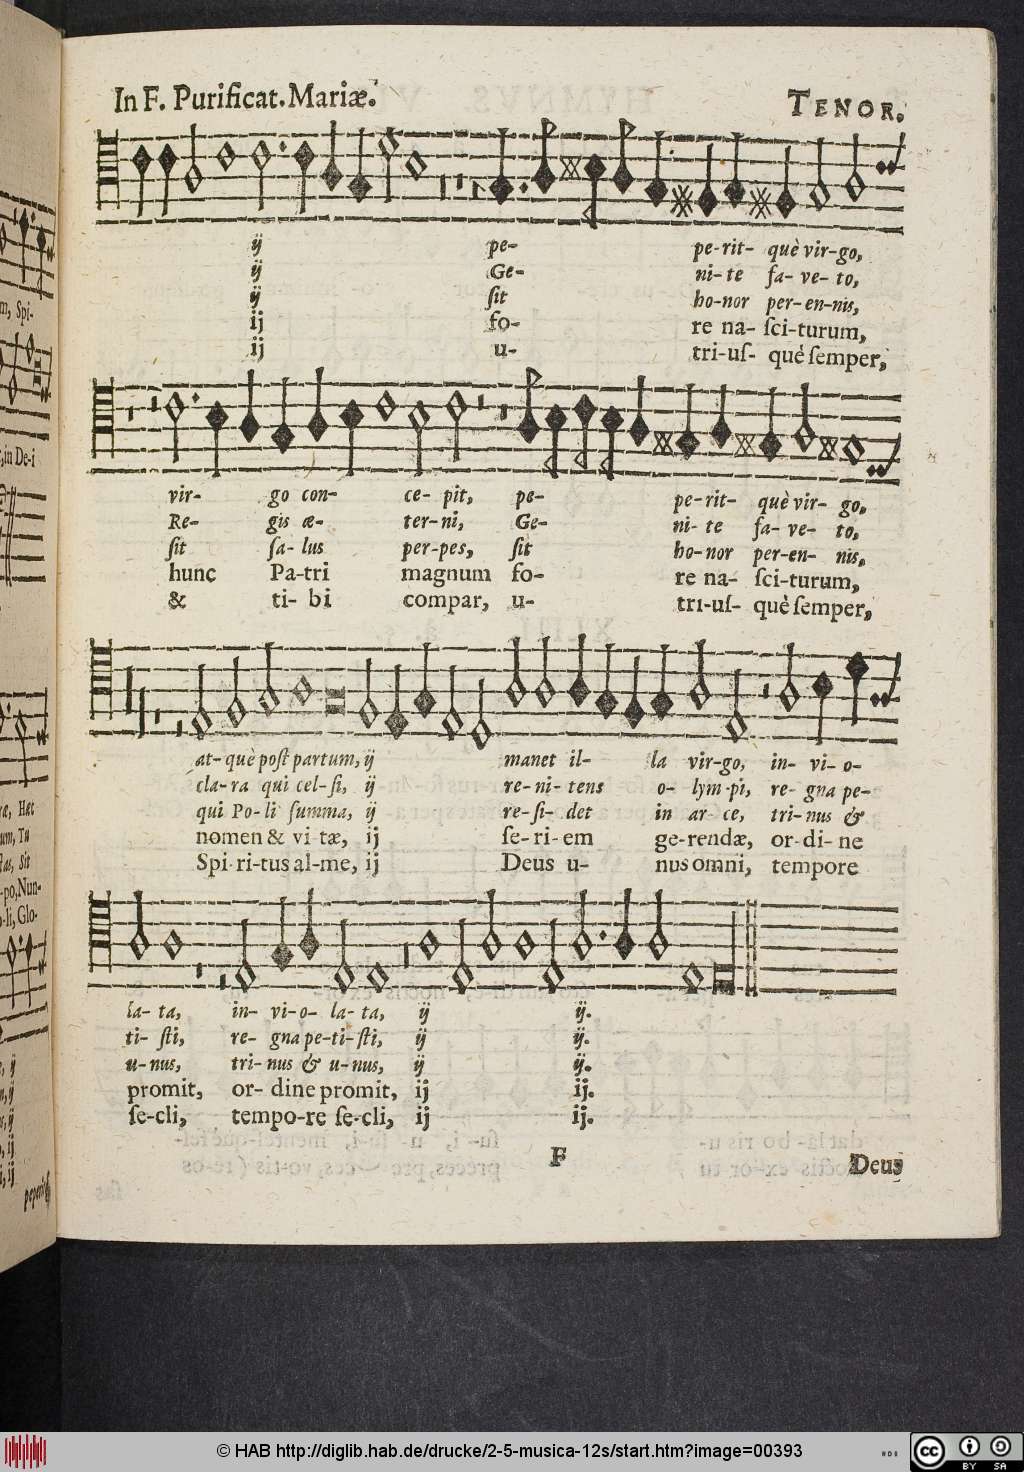 In F. Purificat. Mariæ.
TENOR.
ij pe- pe-rit- què vir-go,
ij Ge- ni-te fa-ve-to,
ij ſit ho-nor per-en-nis,
ij fo- re na-ſci-turum,
ij u- tri-uſ-què ſemper,
vir- go con- ce-pit, pe- pe-rit- què vir-go,
Re- gis æ- ter-ni, Ge- ni-te fa-ve-to,
ſit ſa-lus per-pes, ſit ho-nor per-en-nis,
hunc Pa-tri magnum fo- re na-ſci-turum,
& ti-bi compar, u- tri-uſ-què ſemper,
at-què poſt partum, ij manet il- la vir-go, in-vi-o-
cla-ra qui cel-ſi, ij re-ni-tens o-lym-pi, re-gna pe-
qui Po-li ſumma, ij re-ſi-det in ar-ce, tri-nus &
nomen & vi-tæ, ij ſe-ri-em ge-rendæ, or-di-ne
Spi-ri-tus al-me, ij Deus u- nus omni, tempore
la-ta, in-vi-o-la-ta, ij ij.
ti-ſti, re-gna pe-ti-ſti, ij ij.
u-nus, tri-nus & u-nus, ij ij.
promit, or-dine promit, ij ij.
ſe-cli, tempo-re ſe-cli, ij ij.
F
Deus
© HAB http://diglib.hab.de/drucke/2-5-musica-12s/start.htm?image=00393
cc BY SA